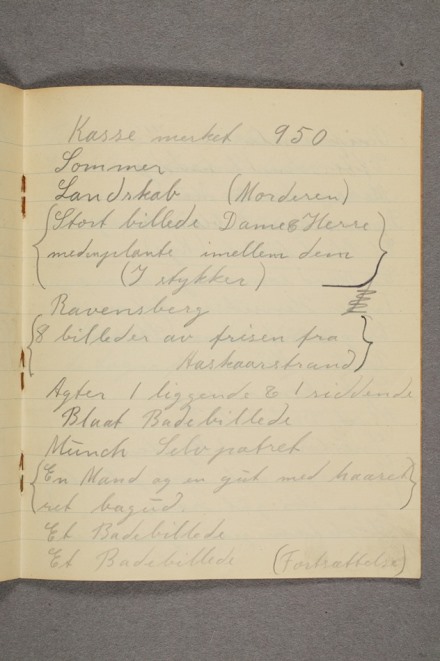 Kasse merket 950
Sommer
Landskab (Morderen)
Stort billede Dame & Herre
med plante imellem dem
(7 stykker)
Ravensberg
8 billeder av frisen fra
Aaskaarstrand
Agter 1 liggende & 1 riddende
Blaat Badebillede
Münch Selvpotret
En Mand og en gut med haaret
ret bagud.
Et Badebillede
Et Badebillede (Fortrættelse)